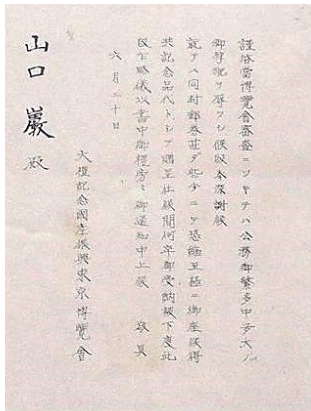 謹啓當博覽會審査ニツキテハ公務御繁多中多大ノ
御尽力ヲ辱ウシ候段奉深謝候
就テハ同封郵券甚ダ些少ニテ恐縮至極ニ御座候得
共記念品代トシテ進呈仕候間何卒御受納被下度此
段乍略儀以書中御挨拶旁御通知申上候 敬具
六月二十日
大禮記念國産振興東京博覽會
山口巖殿